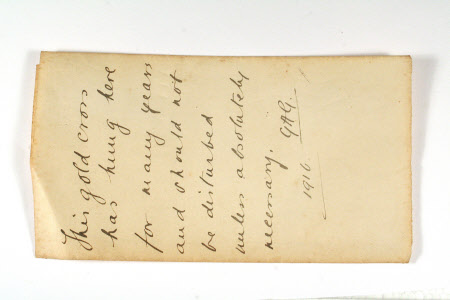 This gold cross
has hung here
for many years
and should not
be disturbed
unless absolutely
necessary. GAG.
1916.